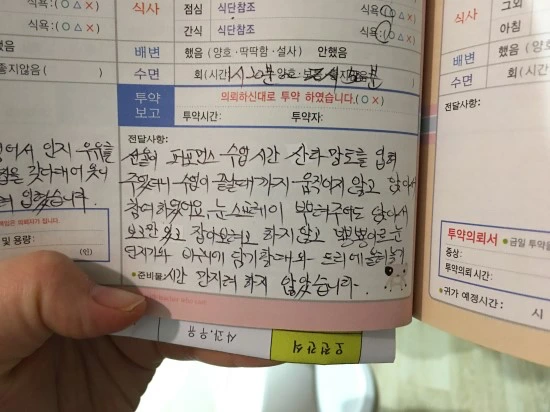 식욕:(○△×)
식사
점심 식단참조 식욕:(○△×)
간식 식단참조 식욕:(○△×)
배변 했음 (양호·딱딱함·설사) 안했음
수면 회(시간
투약보고
의뢰하신대로 투약 하였습니다.(○×)
투약시간: 투약자:
전달사항:
퍼포먼스 수업시간 산타 망토를 입혀
주었더니 수업이 끝날때까지 움직이지 않고 앉아서
참여하였어요. 눈스프레이 뿌려주어도 앉아서
보고만 있고 잡아보려고 하지 않고 뽕뽕이로 눈
던지기와
•준비물: 시간 만지려 하지 않았습니다.
좋지않음(
했음
및 용량:
(인)
사과, 우유
오전간식
식사
그외
아침
배변 했음 (양호
수면 회(시간
전달사항:
투약의뢰서 •금일 투약을
증상:
투약의뢰시간:
•귀가 예정시간: 시